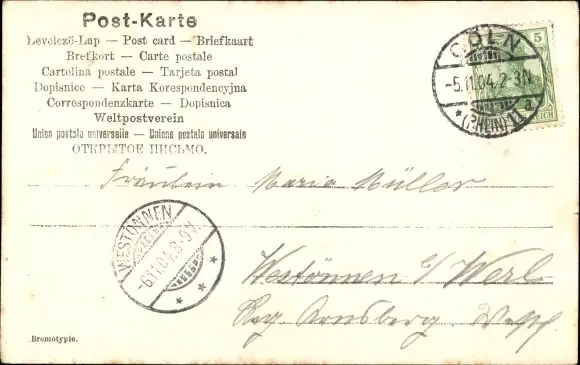 Post-Karte
Levelező-Lap — Post card — Briefkaart
Brefkort — Carte postale
Cartolina postale — Tarjeta postal
Dopisnice — Karta Korespondencyjna
Correspondenzkarte — Dopisnica
Weltpostverein
Union postala universelle — Unione postale universale
ОТКРЫТОЕ ПИСЬМО.
CÖLN
5
-5.11.04.2-3N.
* (RHEIN) 1
a
REICH
Fräulein Maria Müller
WESTÖNNEN
-6.11.04.8-9V.
* * *
Westönnen b/ Werl
Reg. Arnsberg. Westf.
Bremotypie.